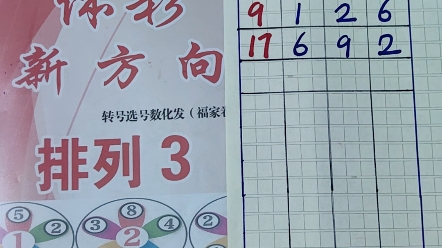 体彩
新方向
转号选号数化发（福家
排列 3
5
1
8
3 4
2
2
9 1 2 6
17 6 9 2